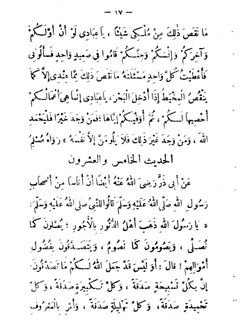 — ١٧ —
مَا نَقَصَ ذَلِكَ مِنْ مُلْكِي شَيْئًا ، يَا عِبَادِي لَوْ أَنَّ أَوَّلَكُمْ
وَآخِرَكُمْ وَإِنْسَكُمْ وَجِنَّكُمْ قَامُوا فِي صَعِيدٍ وَاحِدٍ فَسَأَلُونِي
فَأَعْطَيْتُ كُلَّ وَاحِدٍ مَسْئَلَتَهُ مَا نَقَصَ ذَلِكَ مِمَّا عِنْدِي إِلَّا كَمَا
يَنْقُصُ الْمِخْيَطُ إِذَا أُدْخِلَ الْبَحْرَ ، يَا عِبَادِي إِنَّمَا هِيَ أَعْمَالُكُمْ
أُحْصِيهَا لَكُمْ ثُمَّ أُوَفِّيكُمْ إِيَّاهَا ، فَمَنْ وَجَدَ خَيْرًا فَلْيَحْمَدِ
اللهَ ، وَمَنْ وَجَدَ غَيْرَ ذَلِكَ فَلَا يَلُومَنَّ إِلَّا نَفْسَهُ » رَوَاهُ مُسْلِمٌ
الحديث الخامس والعشرون
عَنْ أَبِي ذَرٍّ رَضِيَ اللهُ عَنْهُ أَيْضًا أَنَّ أُنَاسًا مِنْ أَصْحَابِ
رَسُولِ اللهِ صَلَّى اللهُ عَلَيْهِ وَسَلَّمَ قَالُوا لِلنَّبِيِّ صَلَّى اللهُ عَلَيْهِ وَسَلَّمَ
« يَا رَسُولَ اللهِ ذَهَبَ أَهْلُ الدُّثُورِ بِالْأُجُورِ ؛ يُصَلُّونَ كَمَا
نُصَلِّي ، وَيَصُومُونَ كَمَا نَصُومُ ، وَيَتَصَدَّقُونَ بِفُضُولِ
أَمْوَالِهِمْ ! قَالَ : أَوَلَيْسَ قَدْ جَعَلَ اللهُ لَكُمْ مَا تَصَدَّقُونَ ؟
إِنَّ بِكُلِّ تَسْبِيحَةٍ صَدَقَةً ، وَكُلِّ تَكْبِيرَةٍ صَدَقَةً ، وَكُلِّ
تَحْمِيدَةٍ صَدَقَةً ، وَكُلِّ تَهْلِيلَةٍ صَدَقَةً ، وَأَمْرٍ بِالْمَعْرُوفِ